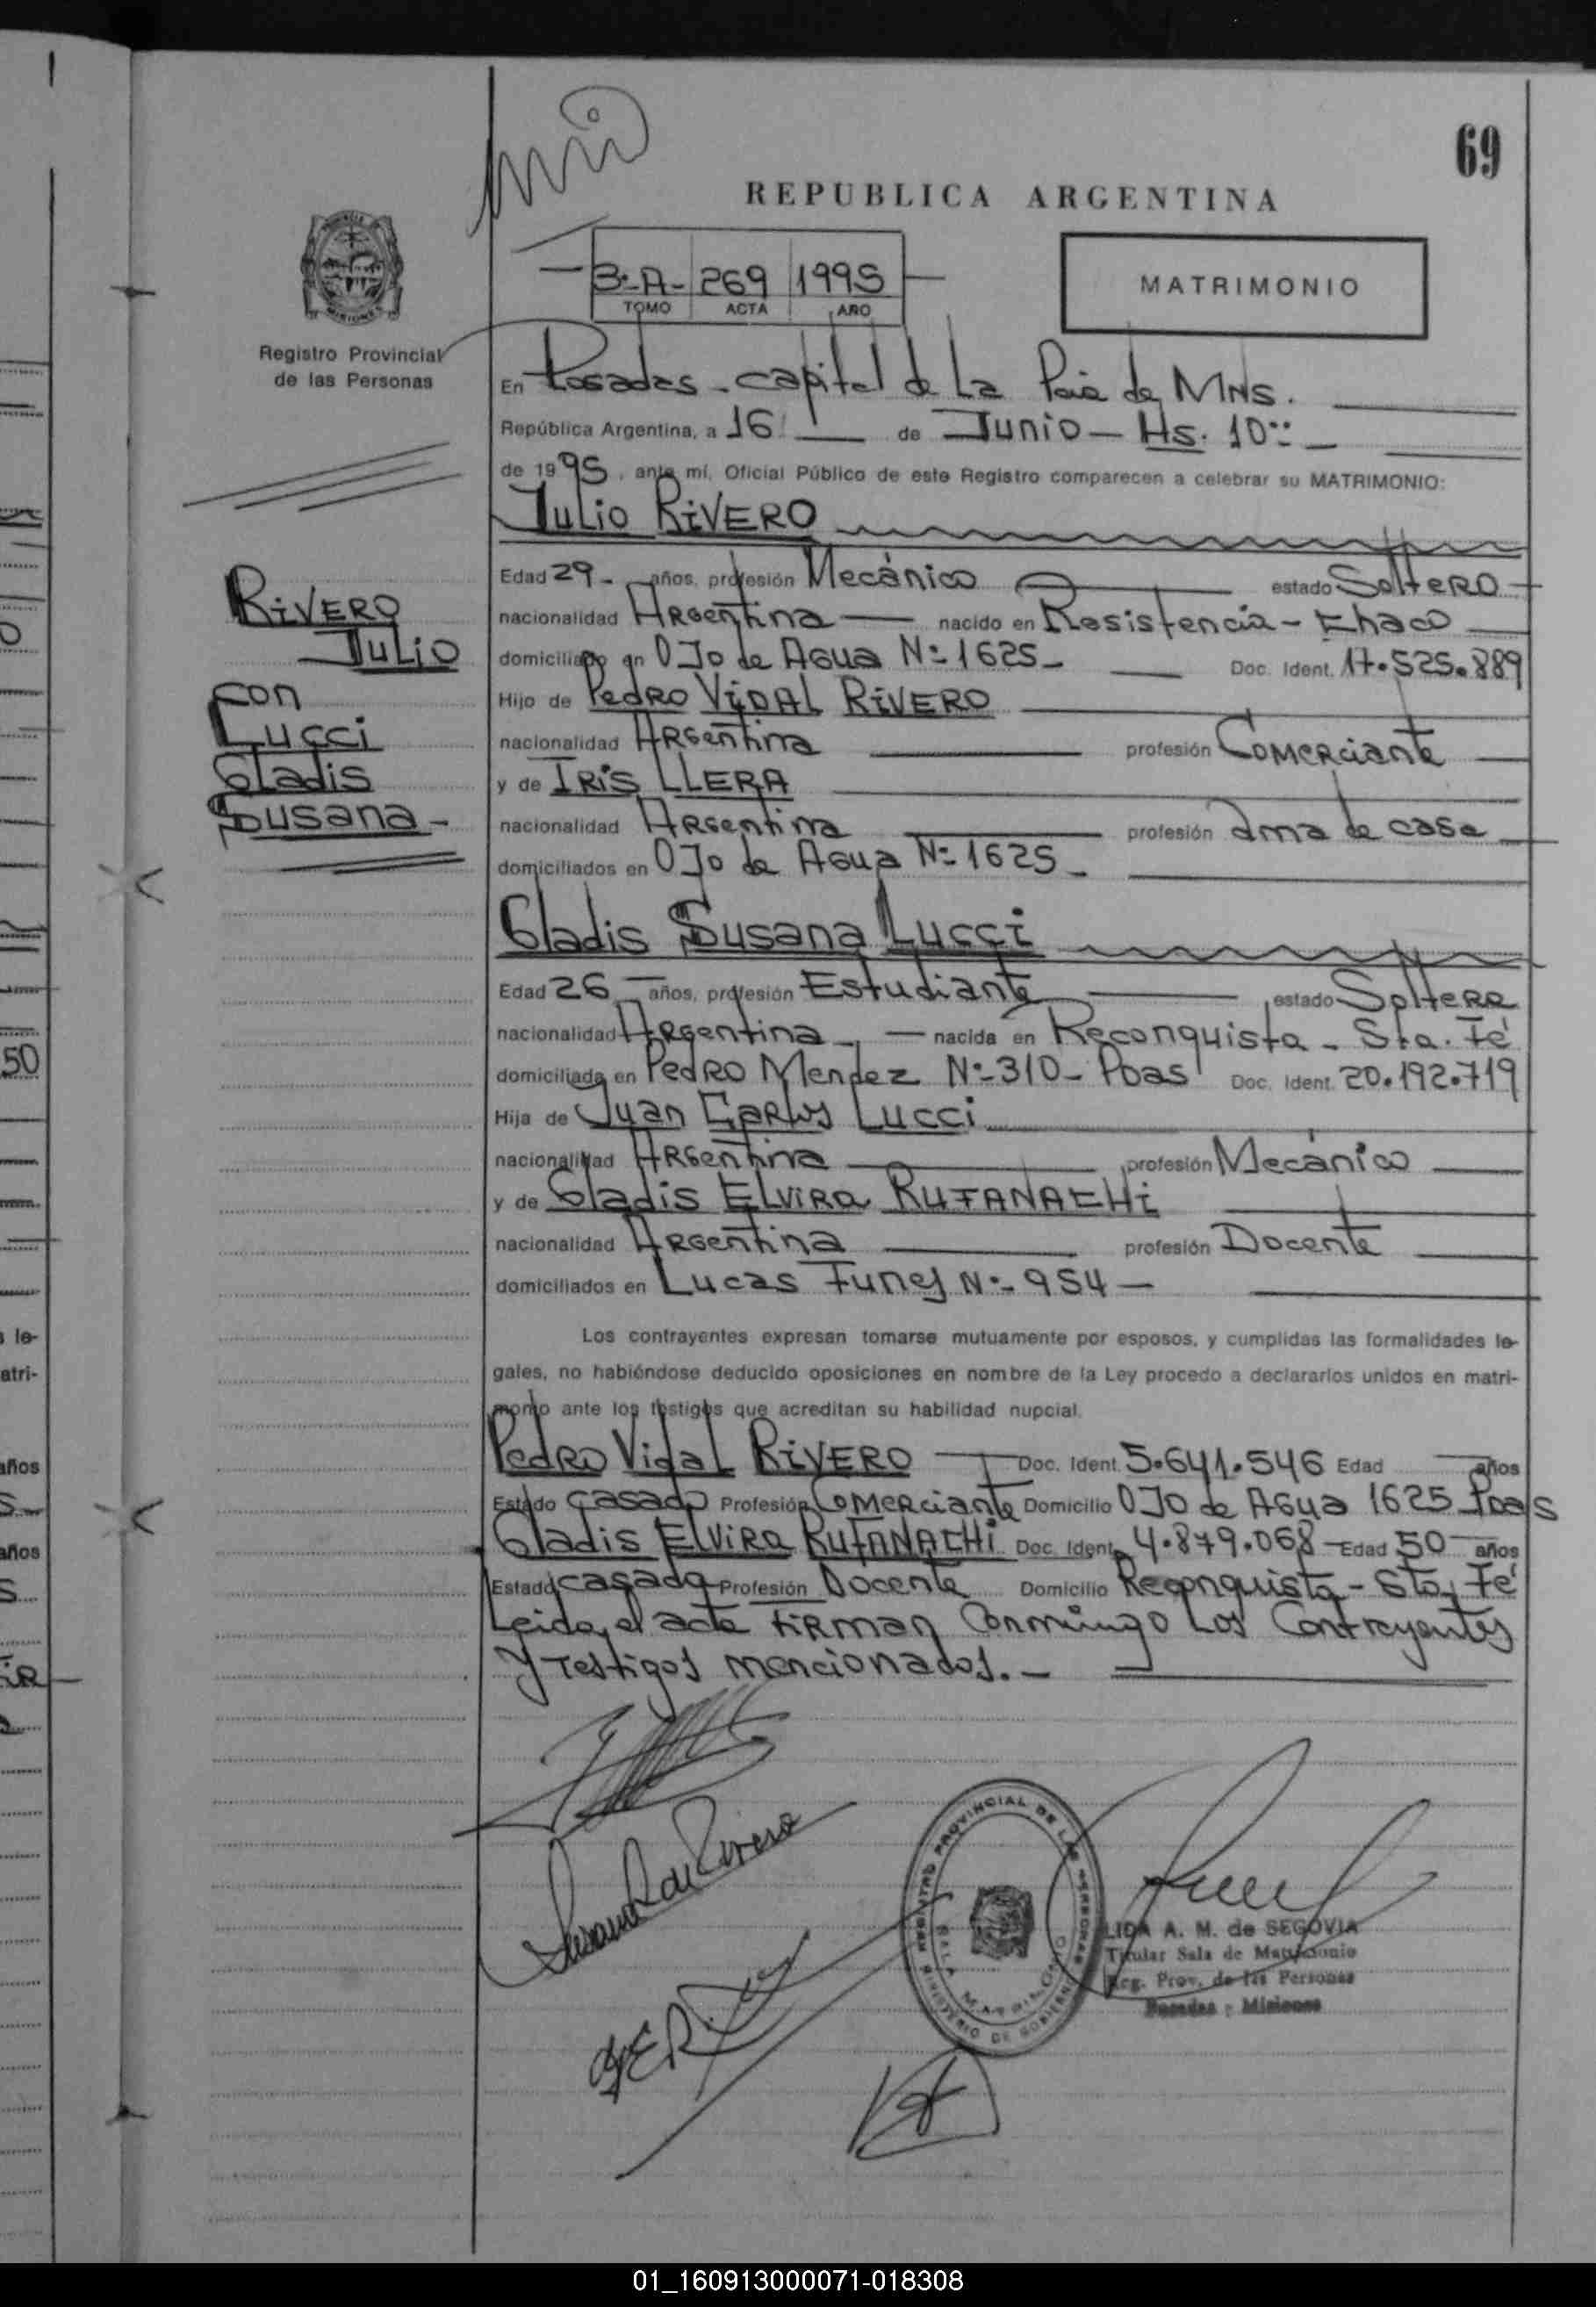 69
REPUBLICA ARGENTINA
3-A- 269 1995
TOMO ACTA AÑO
MATRIMONIO
Registro Provincial
de las Personas
En Posadas - capital de La Pcia de MNS.
República Argentina, a 16 de Junio - Hs. 10
de 1995, ante mí, Oficial Público de este Registro comparecen a celebrar su MATRIMONIO:
Julio RiVERO
Edad 29 - años, profesión Mecánico estado SoltERO
nacionalidad ARgentina nacido en Resistencia - Chaco
domiciliado en OJo de AGua Nº 1625 - Doc. Ident. 17.525.889
Hijo de PedRO ViDAL RiVERO
nacionalidad ARgentina profesión COMERciante
y de IRis LLERA
nacionalidad ARgentina profesión ama de casa
domiciliados en OJo de AGua Nº 1625 -
RiVERO
Julio
con
Lucci
Gladis
Susana -
Gladis Susana Lucci
Edad 26 - años, profesión Estudiante estado SolteRa
nacionalidad ARgentina - nacida en Reconquista - Sta. Fé
domiciliada en PedRO Mendez Nº 310 - Pdas Doc. Ident. 20.192.719
Hija de Juan CaRlos Lucci
nacionalidad ARgentina profesión Mecánico
y de Gladis ELviRa RUFANACHi
nacionalidad ARgentina profesión Docente
domiciliados en Lucas Funes Nº - 954 -
Los contrayentes expresan tomarse mutuamente por esposos, y cumplidas las formalidades le-
gales, no habiéndose deducido oposiciones en nombre de la Ley procedo a declararlos unidos en matri-
monio ante los testigos que acreditan su habilidad nupcial.
PedRO Vidal RiVERO Doc. Ident. 5.641.546 Edad años
Estado casado Profesión COMERciante Domicilio OJO de AGua 1625 Pdas
Gladis ELviRa RUFANACHi Doc. Ident. 4.879.068 - Edad 50 años
Estado casada Profesión Docente Domicilio Reconquista - Sta. Fé
Leida el acta FiRman Conmingo Los Contrayentes
y testigos mencionados. -
REGISTRO PROVINCIAL DE LAS PERSONAS
MINISTERIO DE GOBIERNO
SALA MATRIMONIO
LIDA A. M. de SEGOVIA
Titular Sala de Matrimonio
Reg. Prov. de las Personas
Posadas - Misiones
50
años
años
01_160913000071-018308